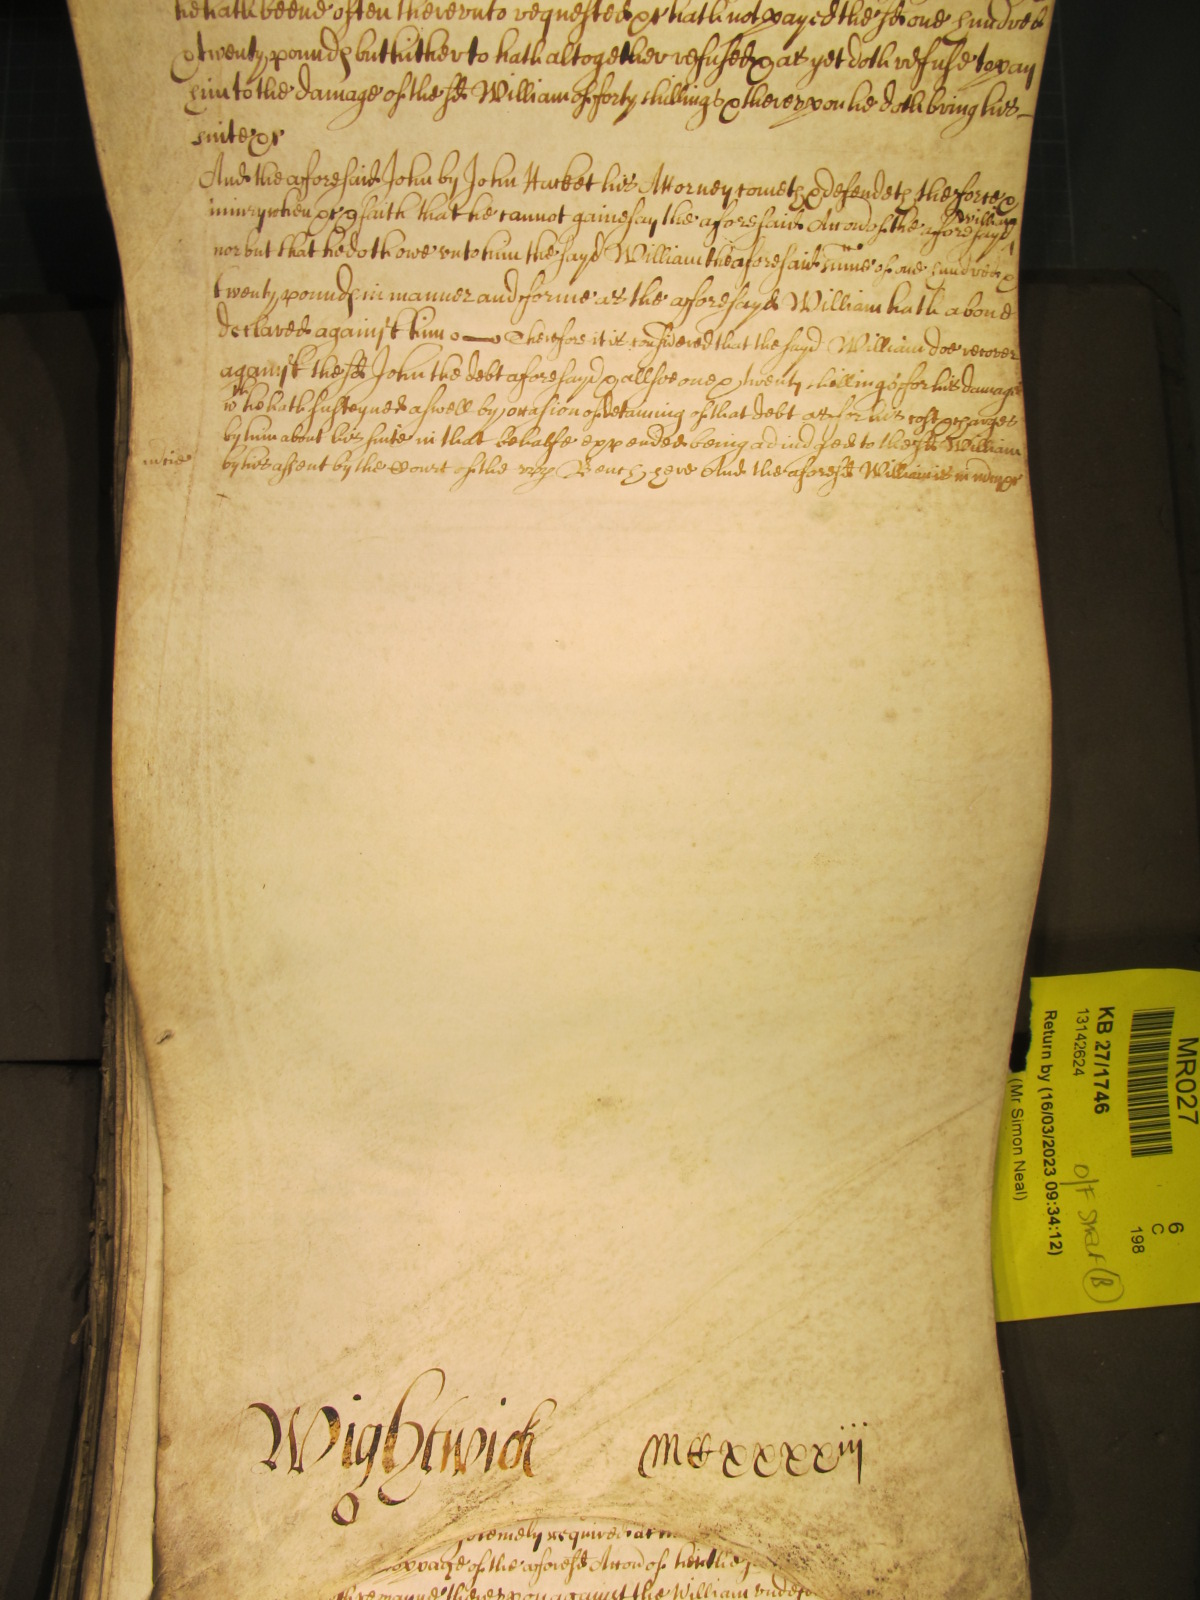 he hath beene often therevnto requested &c hath not payed the sd one hundred
& twenty pounds but hitherto hath altogether refused & as yet doth refuse to pay
him to the damage of the sd William of forty shillings & therevpon he doth bring his
suite &c
And the aforesaid John by John Hacket his Attorney cometh & defendeth the force &
iniury when &c & saith that he cannot gainesay the aforesaid Accon of the aforesayd William
nor but that he doth owe vnto him the sayd William the aforesaid summe of one hundred &
twenty pounds in manner and forme as the aforesayd William hath aboue
declared against him Therefore it is considered that the sayd William doe recover
against the sd John the debt aforesayd & allsoe one & twenty shillings for his damages
wch he hath susteyned aswell by occasion of detaining of that debt as for his costs & charges
by him about his suite in that behalfe expended being adiudged to the sd William
by his assent by the Court of the vpp Bench here And the aforesd William is in mercy &c
mcie
Wightwick
mccxxxxiij
extremely required at
of the aforesd Accon of
therevpon against the William
MR027
KB 27/1746
13142624
Return by (16/03/2023 09:34:12)
(Mr Simon Neal)
6
C
198
O/F Shelf (B)